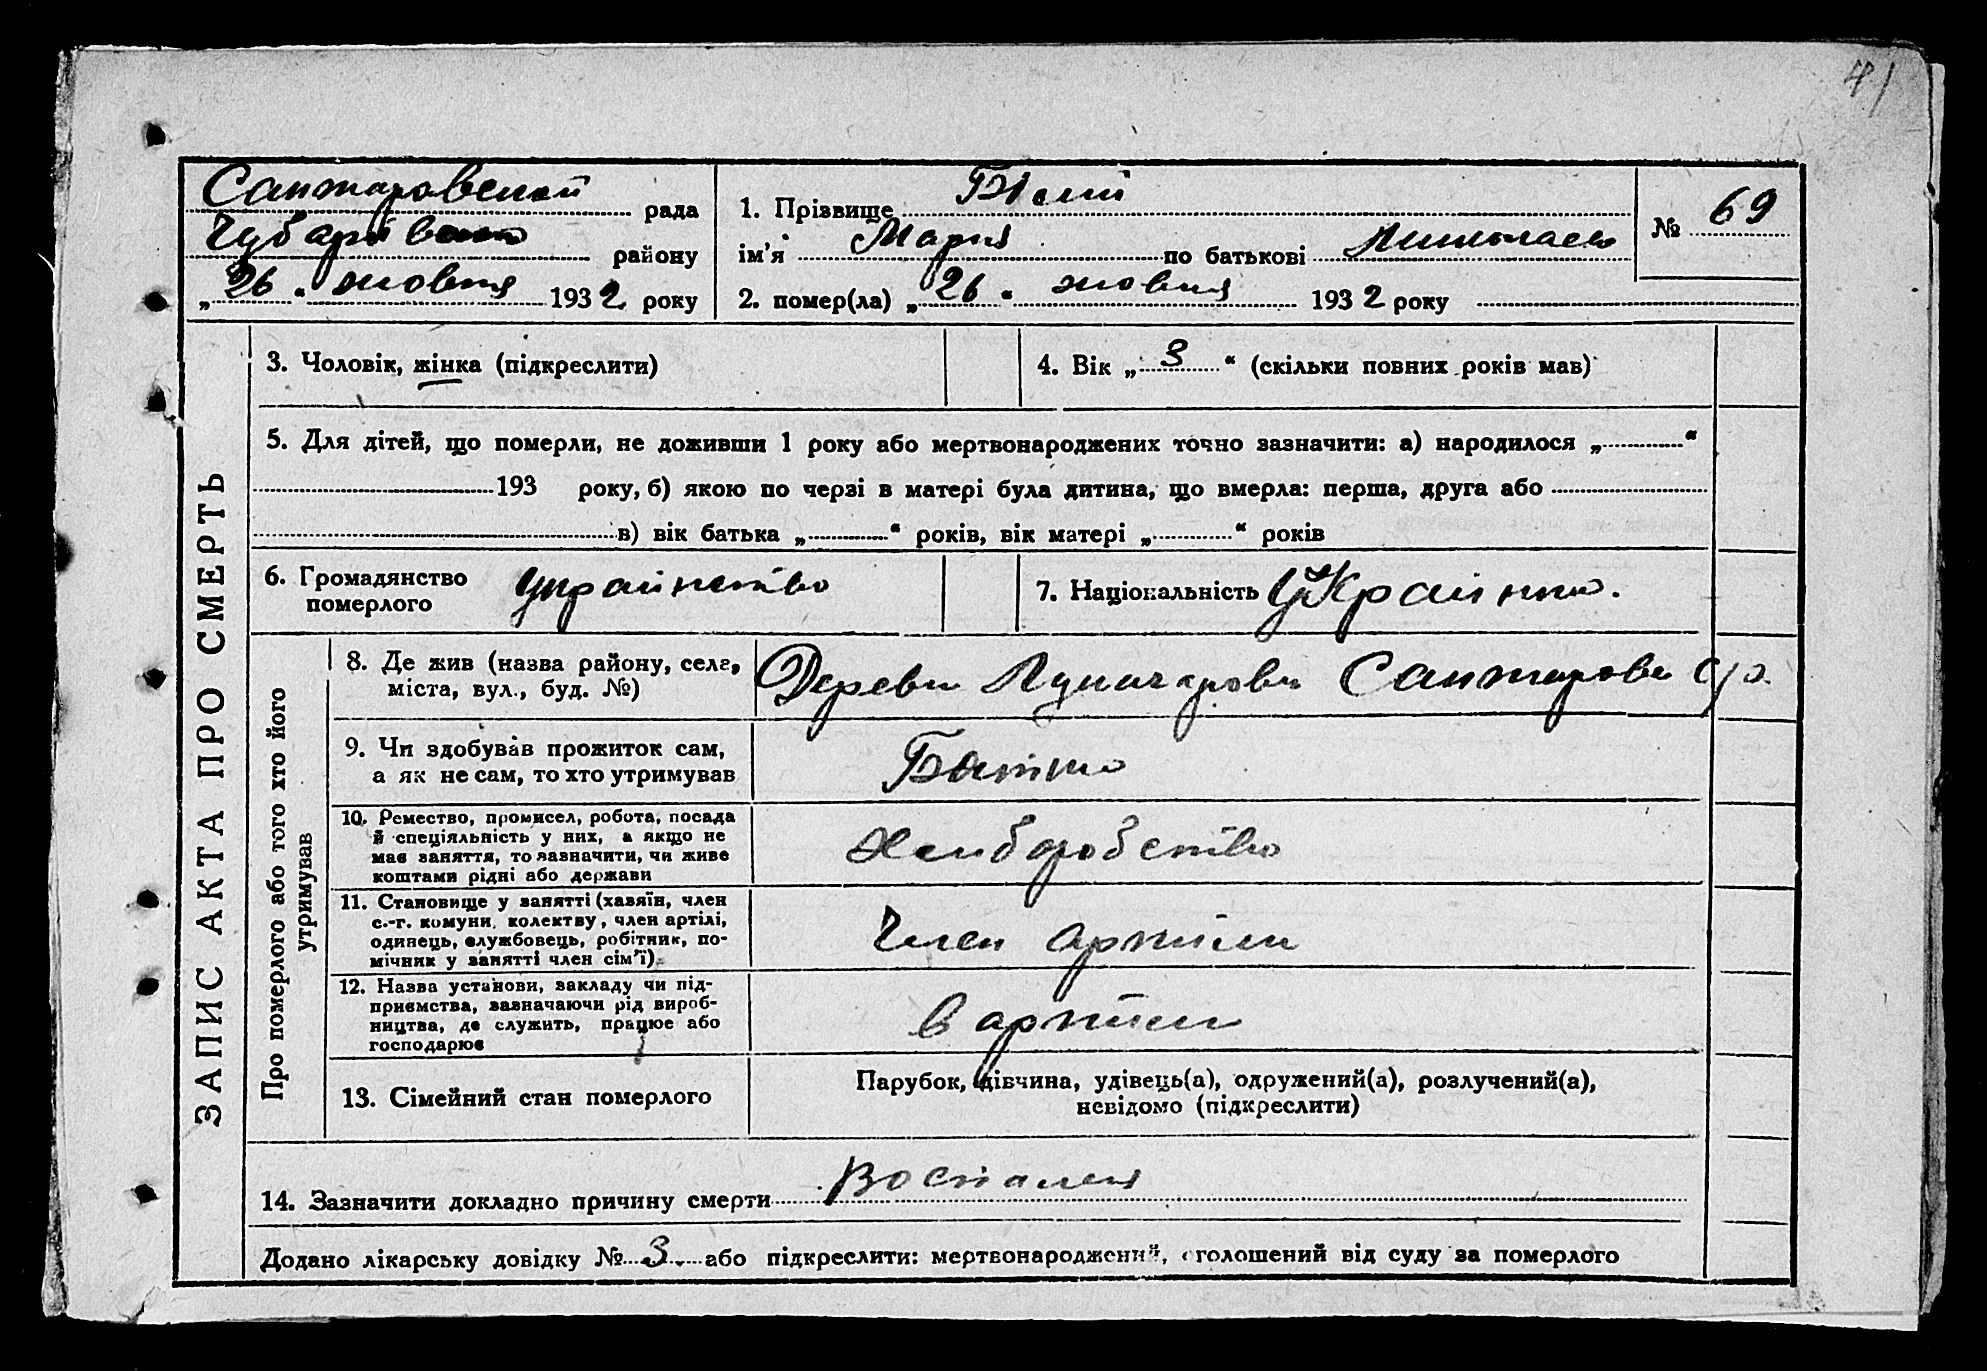 41
Санжаровской рада
Чубарівского району
„26“ жовтня 1932 року
1. Прізвище Білий
ім’я Мария по батькові Николаев
№ 69
2. помер(ла) „26“ жовтня 1932 року
ЗАПИС АКТА ПРО СМЕРТЬ
3. Чоловік, жінка (підкреслити)
4. Вік „3“ (скільки повних років мав)
5. Для дітей, що померли, не доживши 1 року або мертвонароджених точно зазначити: а) народилося „ “
193 року, б) якою по черзі в матері була дитина, що вмерла: перша, друга або
в) вік батька „ “ років, вік матері „ “ років
6. Громадянство померлого
7. Національність Українка.
Про померлого або того хто його утримував
8. Де жив (назва району, села, міста, вул., буд. №)
Деревн Луначаровка Санжаровск с/р.
9. Чи здобував прожиток сам, а як не сам, то хто утримував
Батько
10. Ремество, промисел, робота, посада й спеціяльність у них, а якщо не має заняття, то зазначити, чи живе коштами рідні або держави
Хлиборобство
11. Становище у занятті (хазяїн, член с.-г. комуни, колектву, член артілі, одинець, службовець, робітник, помічник у занятті член сім’ї)
Член артили
12. Назва установи, закладу чи підприємства, зазначаючи рід виробництва, де служить, працює або господарює
в артили
13. Сімейний стан померлого
Парубок, дівчина, удівець(а), одружений(а), розлучений(а),
невідомо (підкреслити)
14. Зазначити докладно причину смерти Воспаления
Додано лікарську довідку № 3. або підкреслити: мертвонароджений, оголошений від суду за померлого